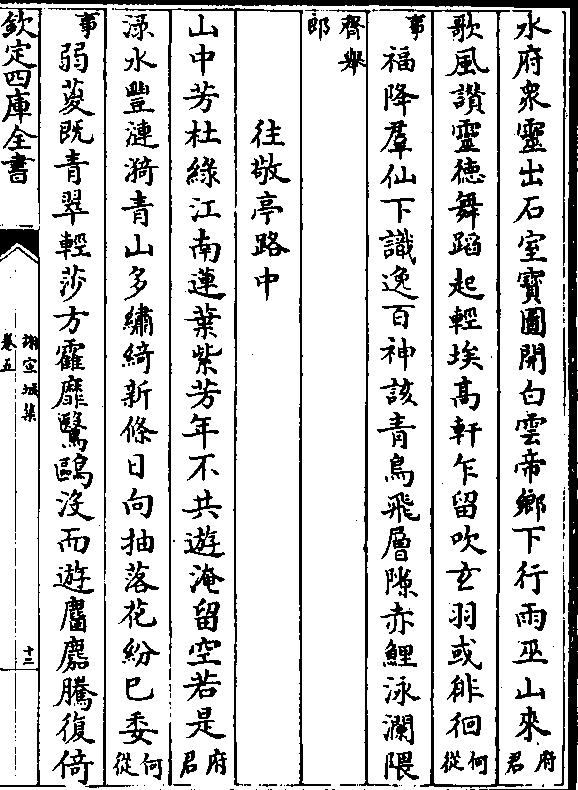 水府衆靈出石室寳圖開白雲帝鄉下行雨巫山來府君
歌風讃靈德舞蹈起輕埃髙軒乍留吹玄羽或徘徊何從
事福降羣仙下識逸百神該青鳥飛層隙赤鯉泳瀾隈
齊舉郎
往敬亭路中
山中芳杜綠江南蓮葉紫芳年不共遊淹留空若是府君
渌水豐漣漪青山多繡綺新條日向抽落花紛已委何從
事弱葼既青翠輕莎方霍靡鷖鷗没而遊麕麚騰復倚
欽定四庫全書
謝宣城集
卷五
十三